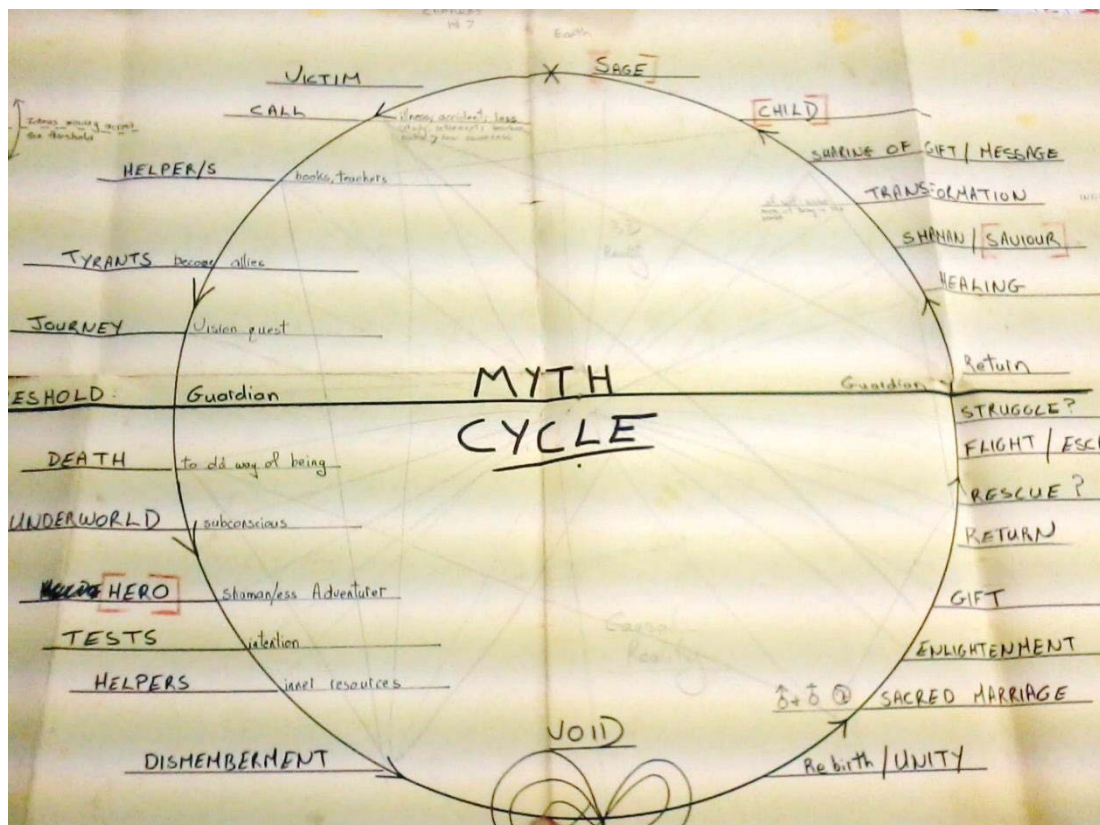 Earth
SAGE
VICTIM
CALL
illness, accident, loss
HELPER/S books, teachers
TYRANTS become allies
JOURNEY Vision quest
ESHOLD: Guardian
DEATH to old way of being
UNDERWORLD subconscious
HERO Shaman/ess Adventurer
TESTS intention
HELPERS inner resources
DISMEMBERMENT
VOID
MYTH
CYCLE
3D
Reality
Causal
Reality
CHILD
SHARING OF GIFT / MESSAGE
TRANSFORMATION
SHAMAN / SAVIOUR
HEALING
Return
Guardian
STRUGGLE?
FLIGHT / ESC
RESCUE?
RETURN
GIFT
ENLIGHTENMENT
SACRED MARRIAGE
Rebirth / UNITY